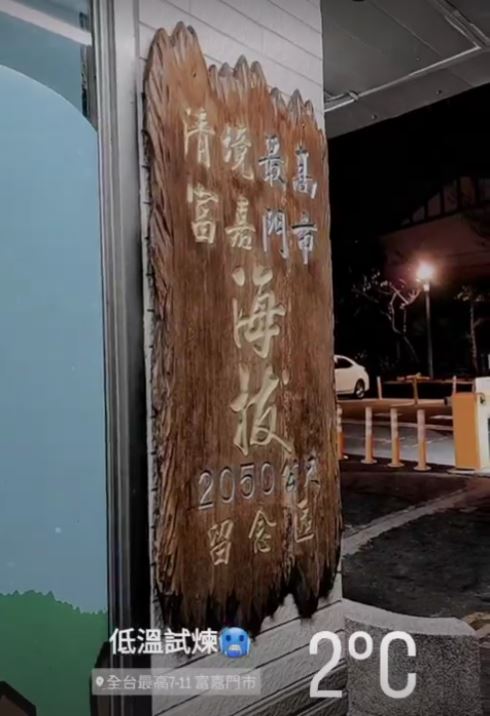 清境最高
富嘉門市
海拔
2050公尺
留念區
低溫試煉🥶
全台最高7-11 富嘉門市
2°C